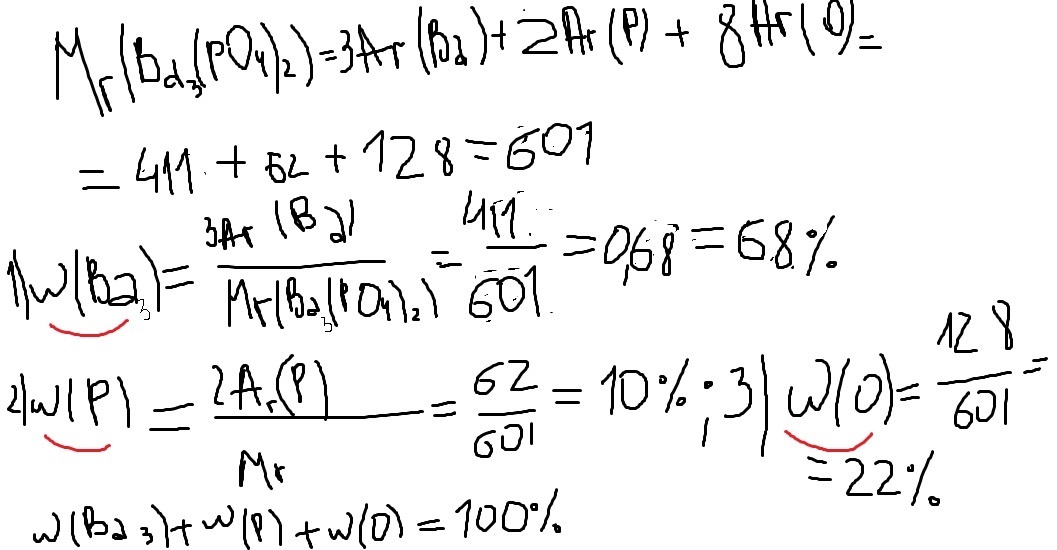 Mr(Ba₃(PO₄)₂)=3Ar(Ba)+2Ar(P)+8Ar(O)=
=411+62+128=601
1)w(Ba₃)=3Ar(Ba)/Mr(Ba₃(PO₄)₂)=411/601=0,68=68%
2)w(P)=2Ar(P)/Mr=62/601=10%;3)w(O)=128/601=
=22%
w(Ba₃)+w(P)+w(O)=100%